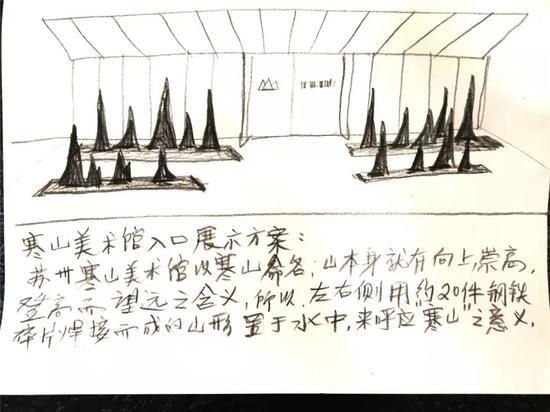 寒山美术馆入口展示方案：
苏州寒山美术馆以寒山命名，山本身就有向上崇高，
登高而望远之含义，所以，左右侧用约20件钢铁
碎片焊接而成的山形置于水中，来呼应寒山"之意义，